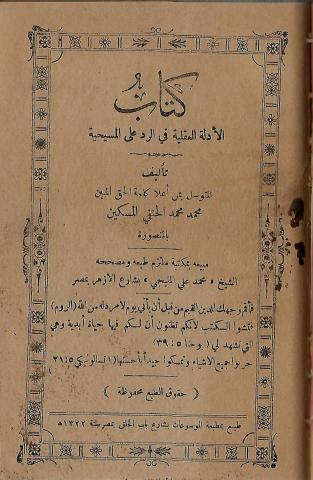 كتاب
الأدلة العقلية في الرد على المسيحية
تأليف
المتوسل بمن أعلا كلمة الحق المبين
محمد محمد الحنفي المسكين
بالمنصورة
مبيعه بمكتبة ملتزم طبعه ومصححه
الشيخ « محمد علي المليجي » بشارع الازهر بمصر
فأقم وجهك للدين القيم من قبل أن يأتي يوم لا مرد له من الله (الروم)
فتشوا الكتب لأنكم تظنون أن لكم فيها حياة أبدية وهي
التي تشهد لي ( يوحنا ٥ : ٣٩)
جربوا جميع الأشياء وتمسكوا جيداً بأحسنها (١ تسالونيكي ٥ : ٢١)
( حقوق الطبع محفوظة )
طبع بمطبعة الموسوعات بشارع باب الخلق بمصر سنة ١٣٢٢ ه